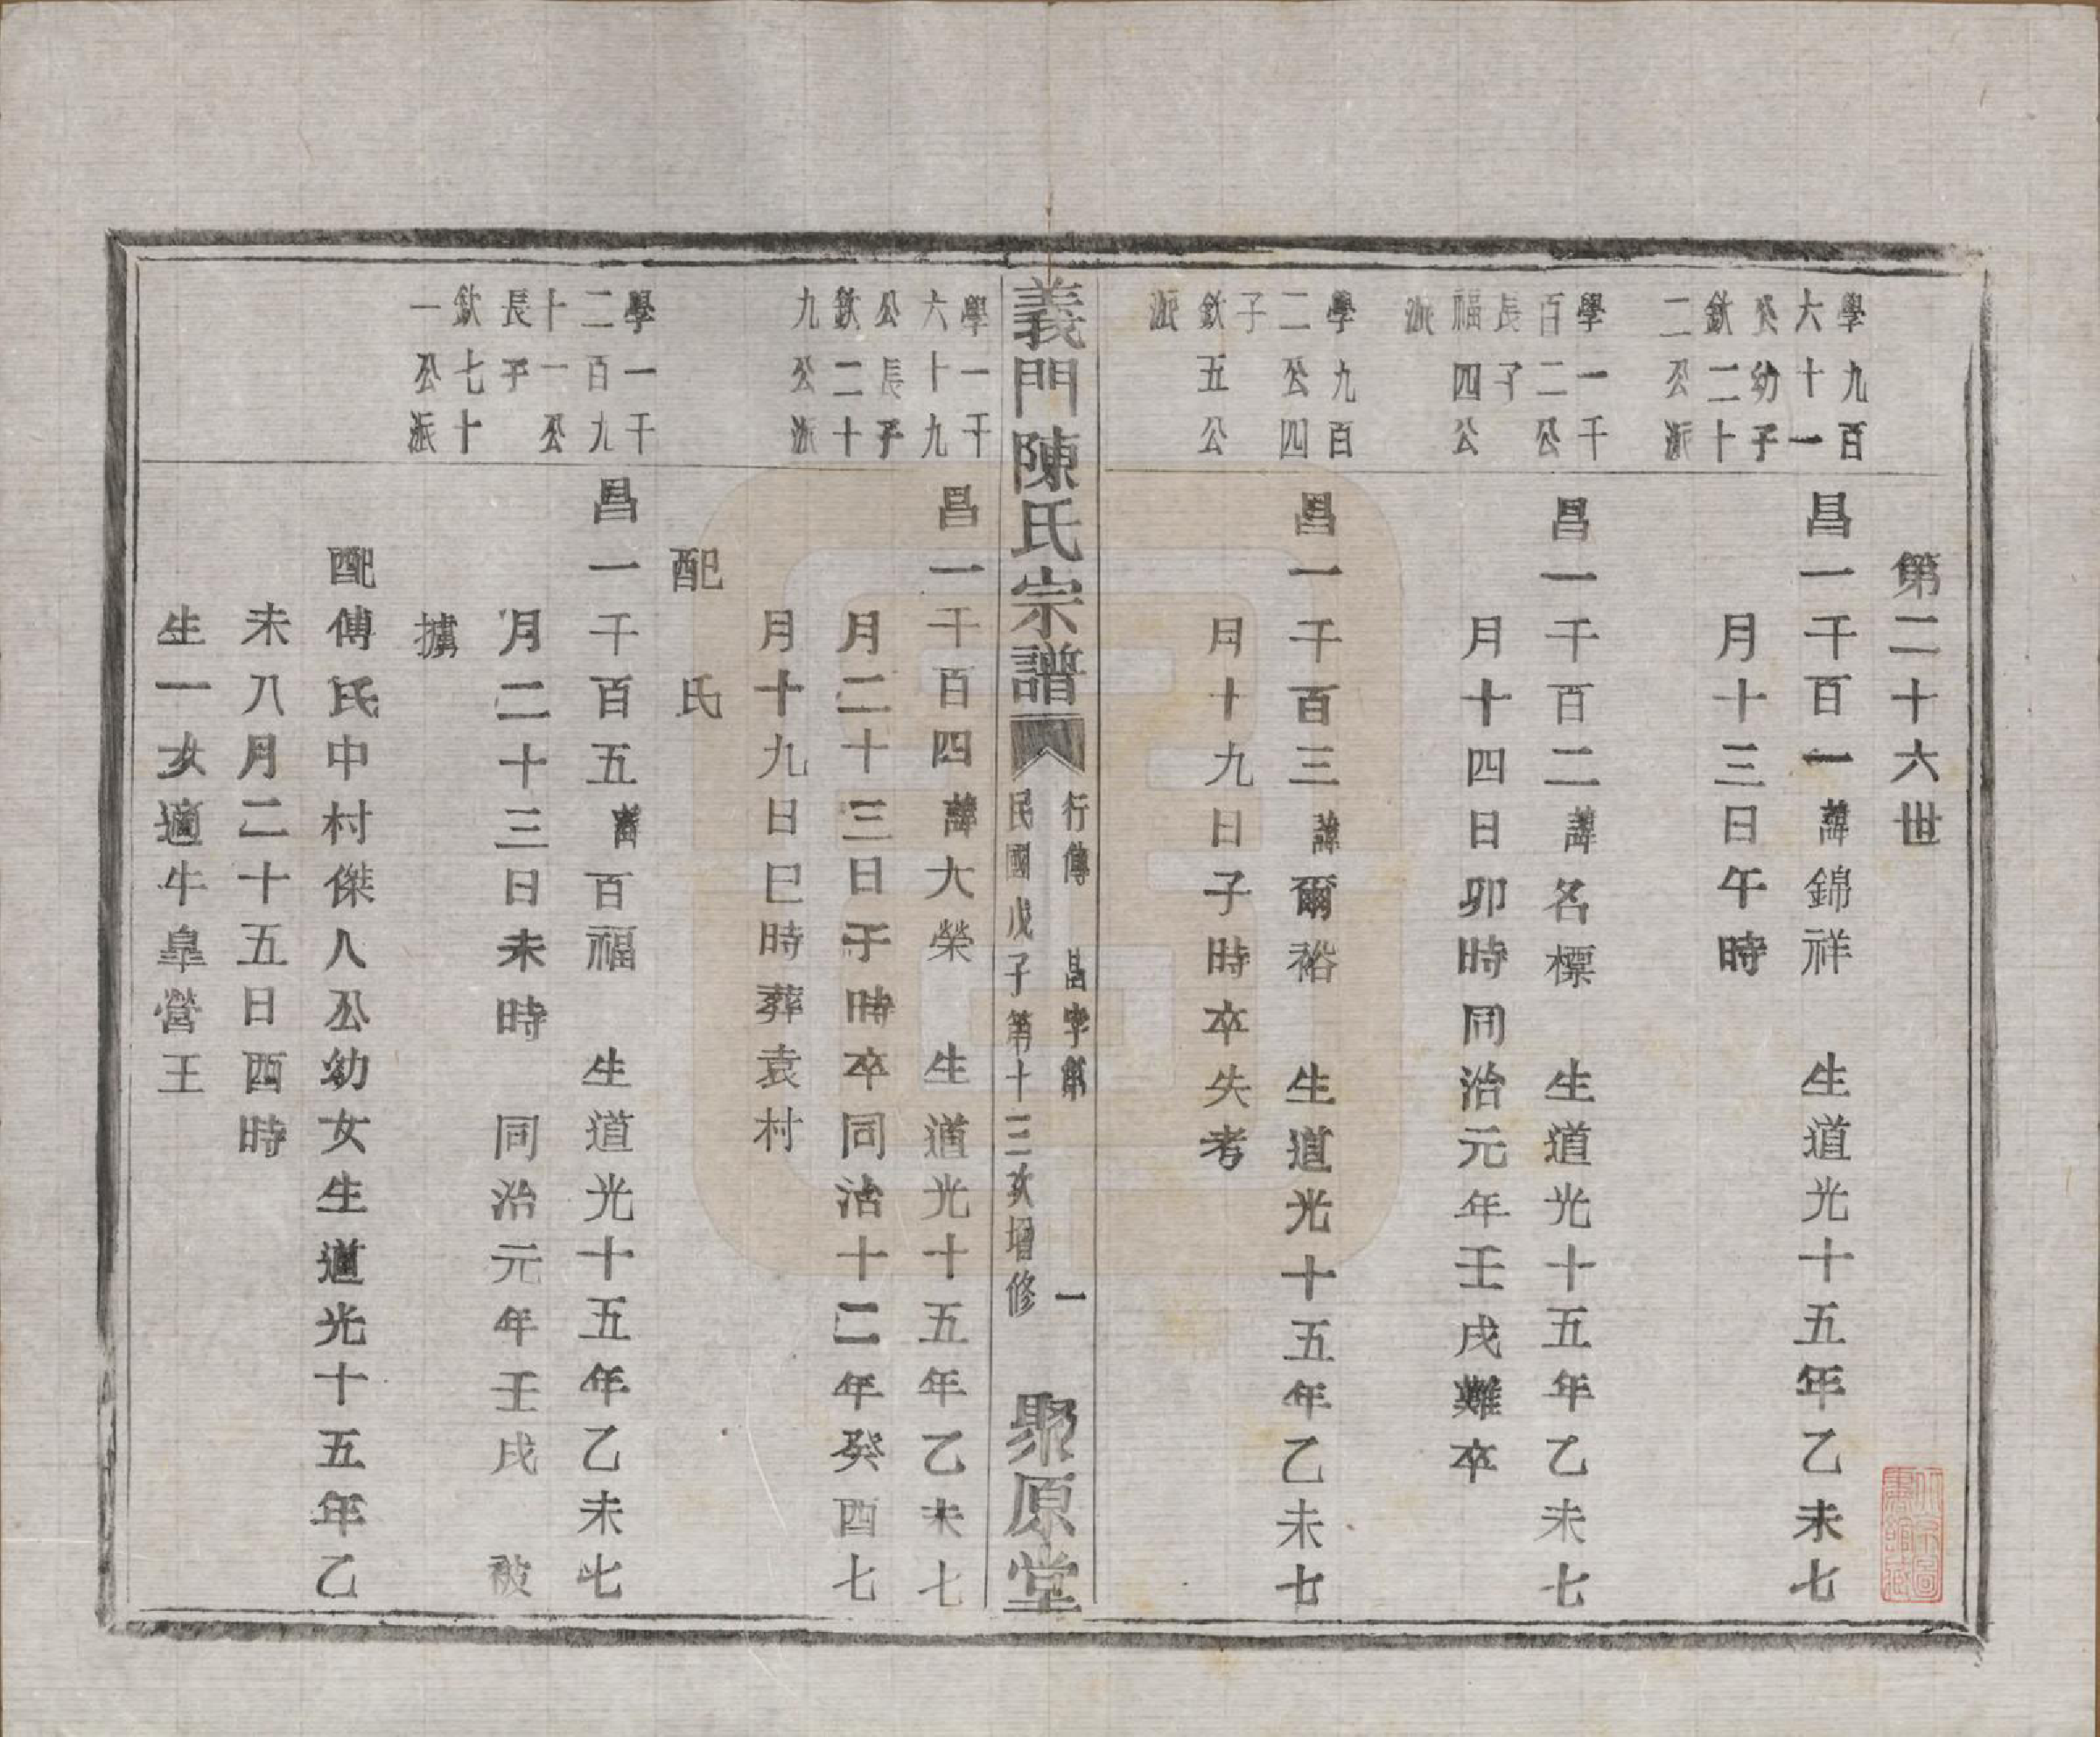 第二十六世
學九百
六十一
癸幼子
欽二十
二公派
昌一千百一諱錦祥　生道光十五年乙未七
月十三日午時
學一千
百二公
長子
福四公
派
昌一千百二諱名標　生道光十五年乙未七
月十四日卯時同治元年壬戌難卒
學九百
二公四
子
欽五公
派
昌一千百三諱爾裕　生道光十五年乙未七
月十九日子時卒失考
義門陳氏宗譜
行傳　昌字第　一
民國戊子第十三次增修
聚原堂
學一千
六十九
公長子
欽二十
九公派
昌一千百四諱大榮　生道光十五年乙未七
月二十三日子時卒同治十二年癸酉七
月十九日巳時葬袁村
配　氏
學一千
二百九
十一公
長子
欽七十
一公派
昌一千百五諱百福　生道光十五年乙未七
月二十三日未時　同治元年壬戌　被
擄
配傅氏中村傑八公幼女生道光十五年乙
未八月二十五日酉時
生一女適牛皐營王